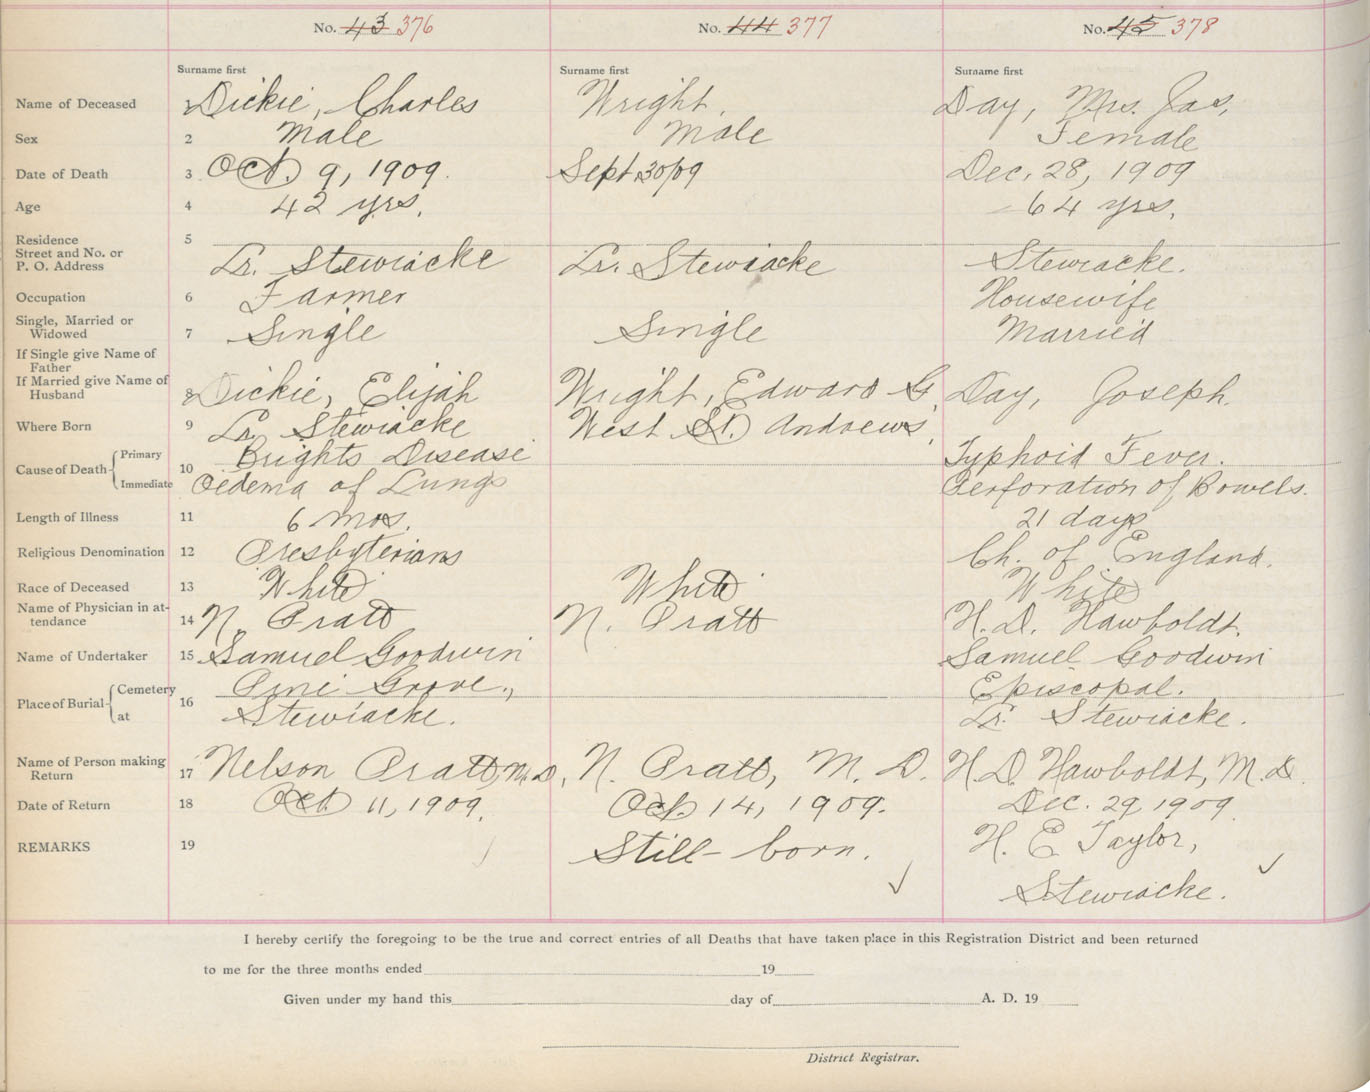 No. 43 376 No. 44 377 No. 45 378
Surname first Surname first Surname first
Name of Deceased 1 Dickie, Charles Wright, Day, Mrs. Jas,
Sex 2 Male Male Female
Date of Death 3 Oct. 9, 1909. Sept 30/09 Dec. 28, 1909
Age 4 42 yrs. 64 yrs.
Residence 5
Street and No. or
P. O. Address Lr. Stewiacke Lr. Stewiacke Stewiacke.
Occupation 6 Farmer Housewife
Single, Married or
Widowed 7 Single Single Married
If Single give Name of
Father
If Married give Name of
Husband 8 Dickie, Elijah Wright, Edward G. Day, Joseph.
Where Born 9 Lr. Stewiacke West St. Andrews,
Cause of Death Primary 10 Brights Disease Typhoid Fever.
Immediate Oedema of Lungs Perforation of Bowels.
Length of Illness 11 6 mos. 21 days
Religious Denomination 12 Presbyterians Ch. of England.
Race of Deceased 13 White White White
Name of Physician in at-
tendance 14 N. Pratt N. Pratt H. D. Hawboldt.
Name of Undertaker 15 Samuel Goodwin Samuel Goodwin
Place of Burial Cemetery 16 Pine Grove., Episcopal.
at Stewiacke. Lr. Stewiacke.
Name of Person making
Return 17 Nelson Pratt, M.D, N. Pratt, M. D. H.D. Hawboldt, M.D.
Date of Return 18 Oct 11, 1909. Oct. 14, 1909. Dec. 29, 1909.
REMARKS 19 Still-born. H. E Taylor,
Stewiacke.
I hereby certify the foregoing to be the true and correct entries of all Deaths that have taken place in this Registration District and been returned
to me for the three months ended 19
Given under my hand this day of A. D. 19
District Registrar.